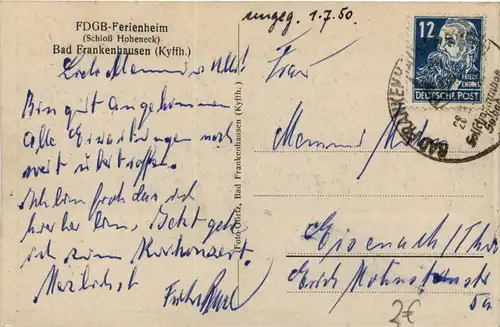 FDGB-Ferienheim
(Schloß Hoheneck)
Bad Frankenhausen (Kyffh.)
eingeg. 1.7.50.
12
FRIEDR.
ENGELS
DEUTSCHE POST
BAD FRANKENH
Liebe
Bin gut angekommen
alle Erwartungen noch
weit übertroffen.
Ich bin froh das ich
hierher bin. Jetzt geh
ich zum Kurkonzert.
Herzlichst
Foto-Görtz, Bad Frankenhausen (Kyffh.)
Frau
Eisenach/Thür
Erich
5a
2€